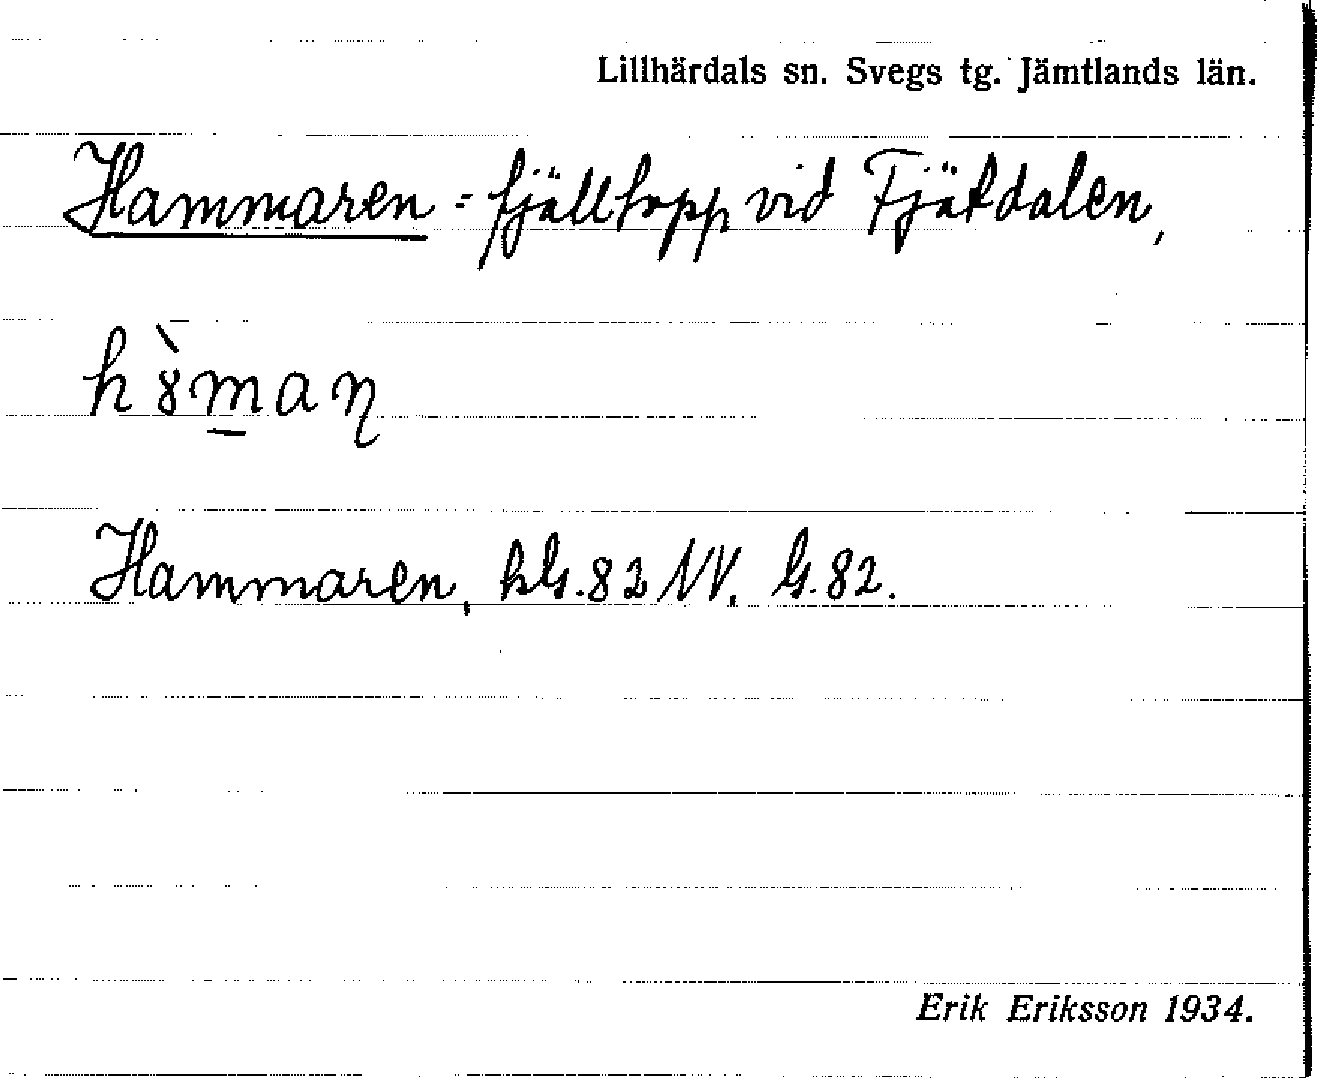 Lillhärdals sn. Svegs tg. Jämtlands län.
Hammaren = fjälltopp vid Fjätdalen,
h ȣ̀ m̲ a ŋ
Hammaren, kG. 82 NV. G. 82.
Erik Eriksson 1934.